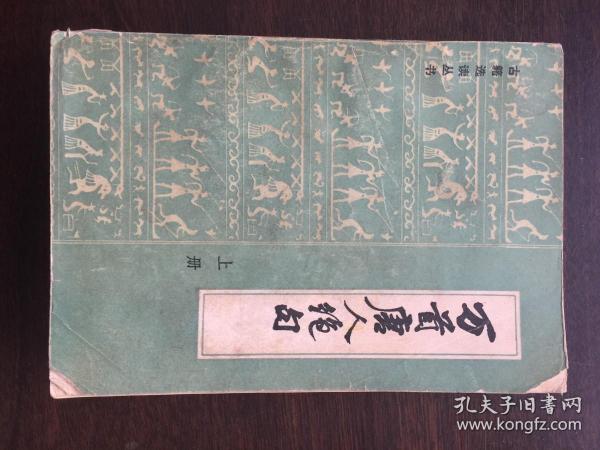 古籍选读丛书
上册
万首唐人绝句
孔夫子旧书网
www.kongfz.com